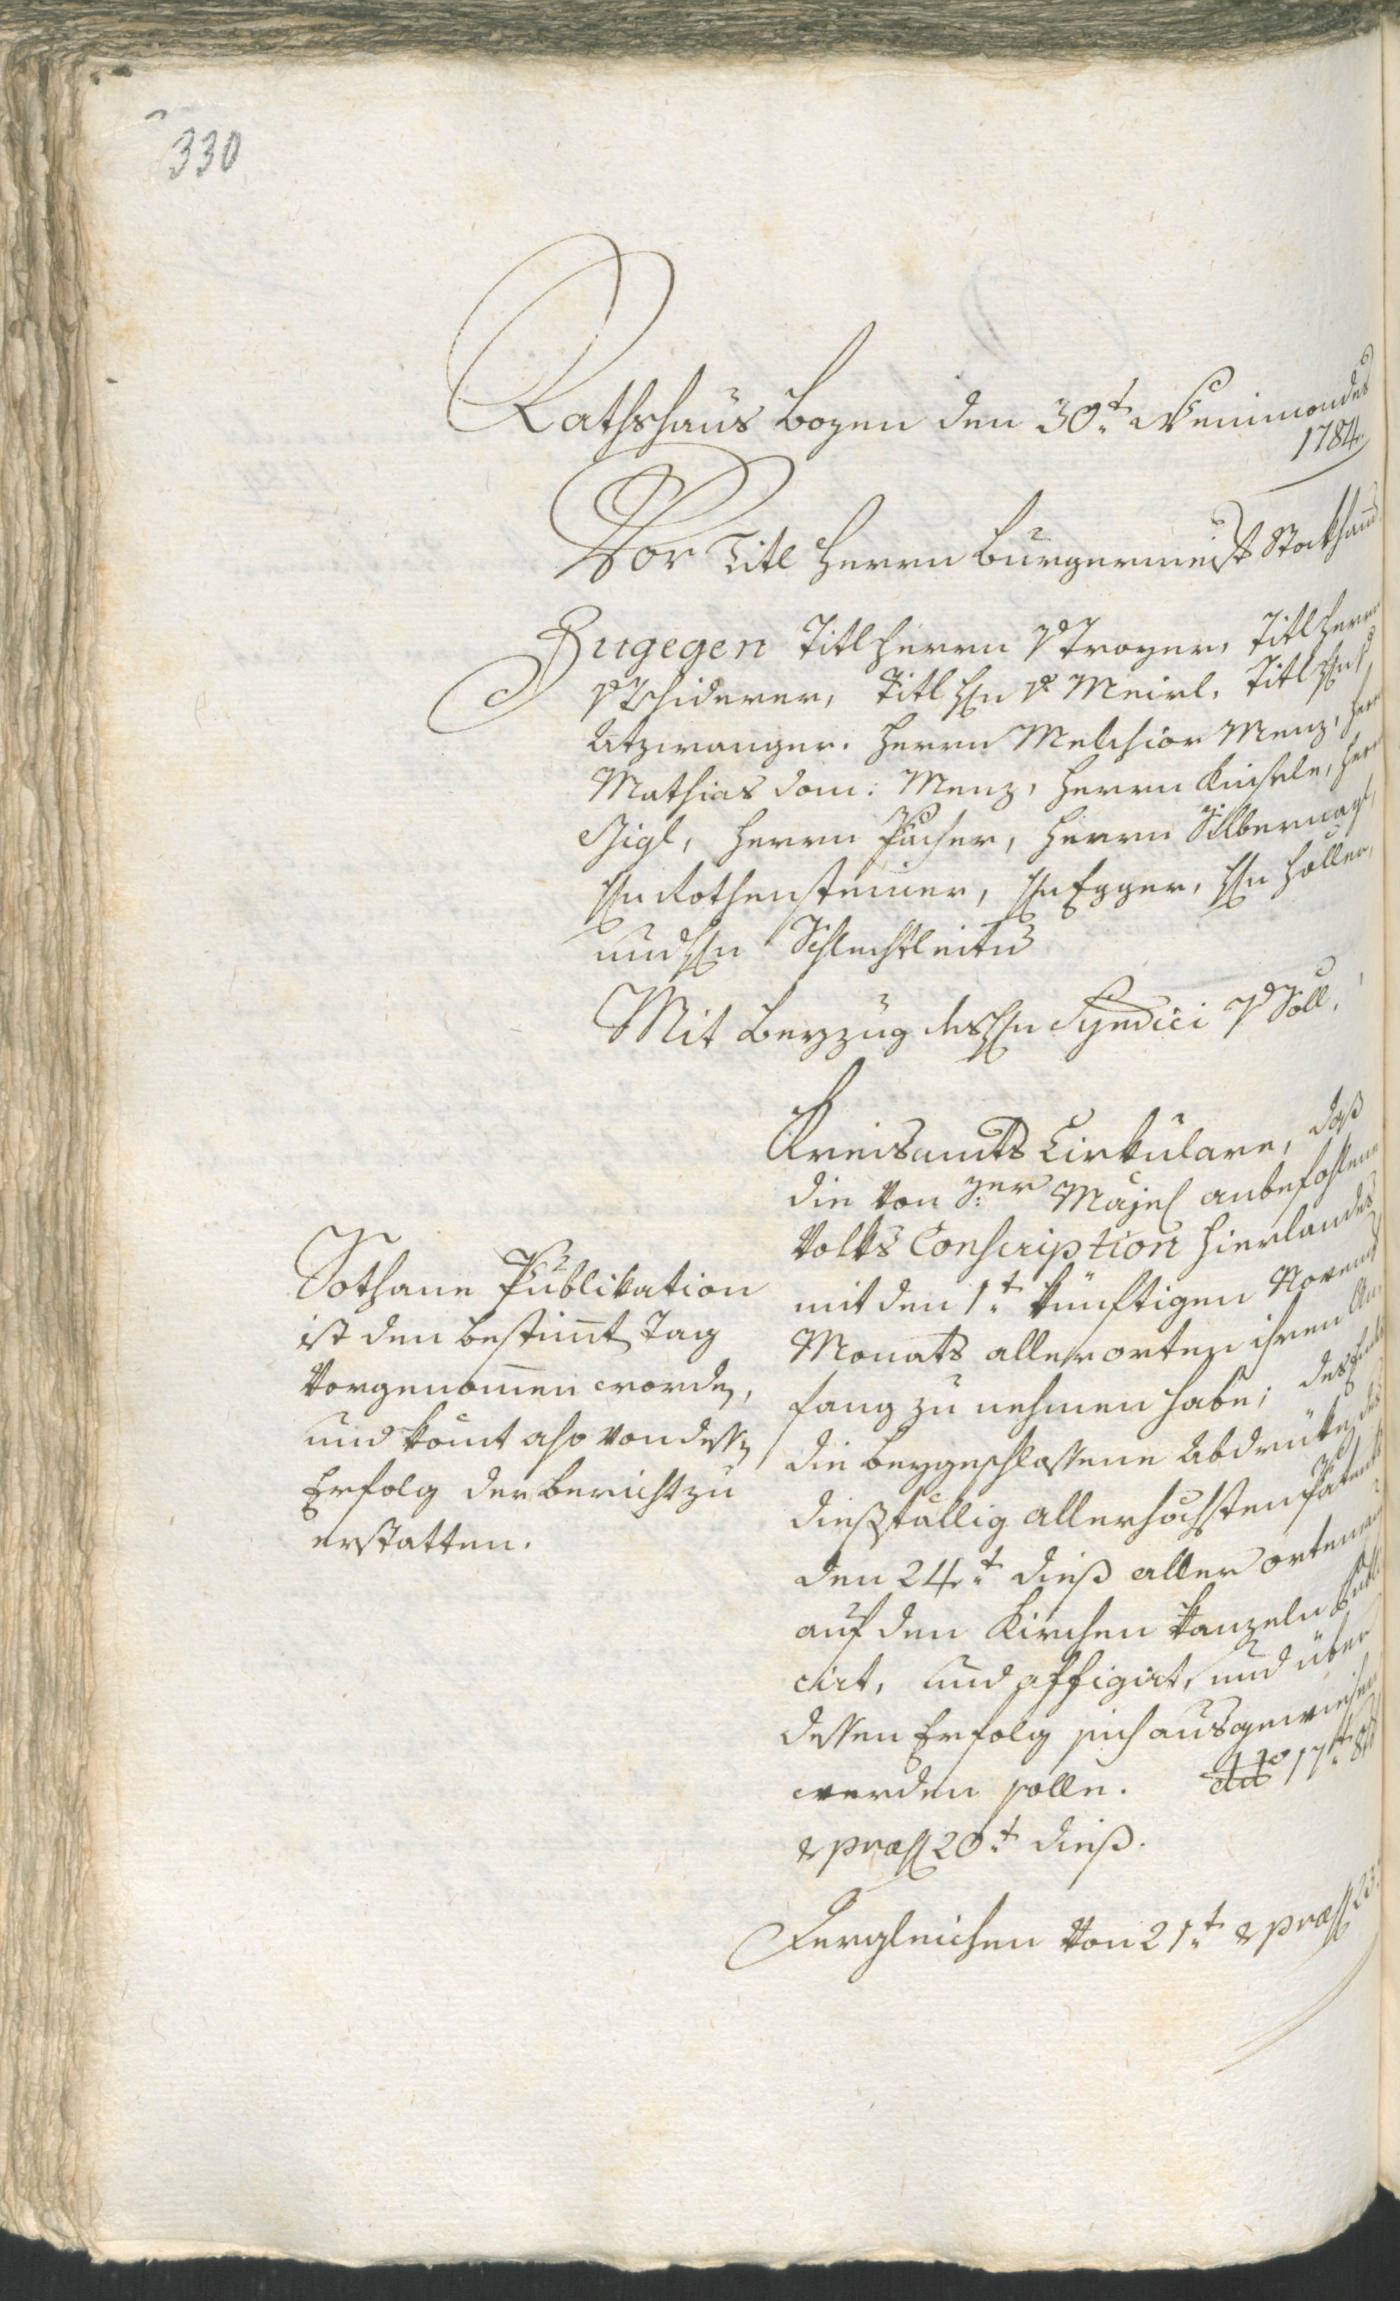 330
Rathshaus Bozen den 30t Weinmondes
1784
Vor Titl Herrn Burgermeistr Stockhamr
Zugegen Titl Herrn v Troyer, Titl Herrn
v Tschiderer, Titl Hrn v Meirl, Titl Hrn v
Atzwanger. Herrn Melchior Menz, Herrn
Mathias Dom: Menz, Herrn Kinsele, Herrn
Gigl, Herrn Pücher, Herrn Silbernagl,
Hrn Rothensteiner, Hrn Egger, Hrn Holler,
und Hrn Schlechtleitner
Mit Beyzug des Hrn Syndici v Söll.
Kreisamts Cirkulare, daß
die von Ser Majes anbefohlene
Volks Conscription hierlandes
mit den 1t künftigen Novembr
Monats allerorten ihren An-
fang zu nehmen habe; des Endes
die beygeschlossene Abdrüke des
dießfällig allerhöchsten Patents
den 24t dieß aller orten
auf den Kirchen Kanzeln publi-
cirt, und affigirt, und über
dessen Erfolg sich ausgewiesen
werden solle. ddo 17t
& præs 20t dieß.
Sothane Publikation
ist den bestimt Tag
vorgenommen worden,
und komt also von dessen
Erfolg der Bericht zu
erstatten.
Dergleichen von 21t & præs 23